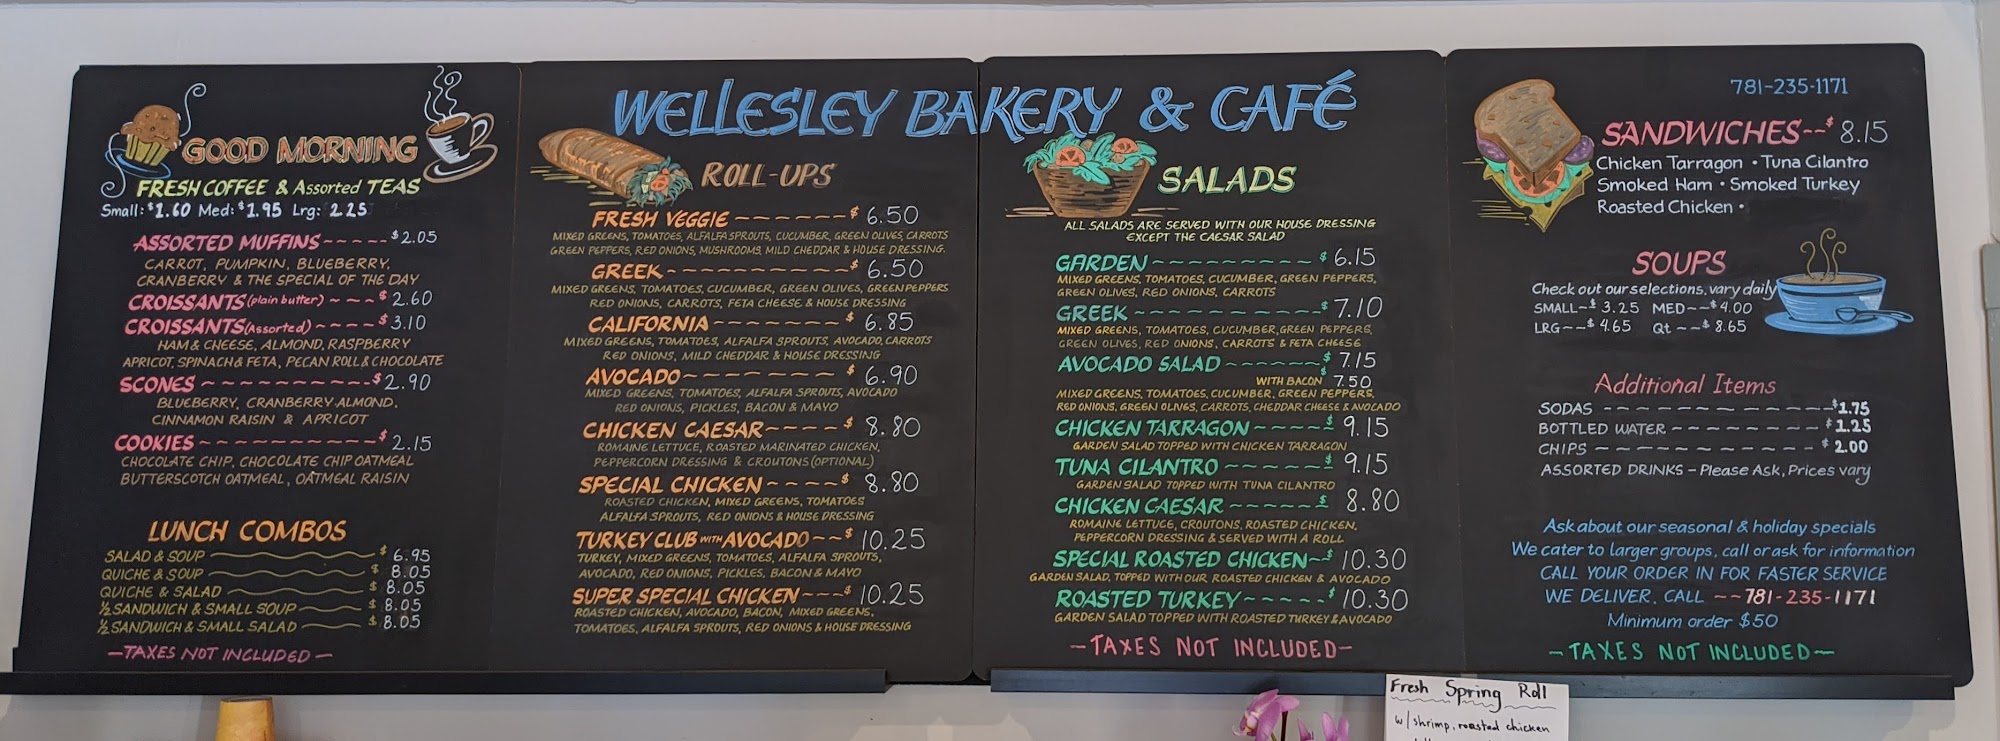 WELLESLEY BAKERY & CAFÉ
GOOD MORNING
FRESH COFFEE & Assorted TEAS
Small: $1.60 Med: $1.95 Lrg: 2.25
ASSORTED MUFFINS ----- $2.05
CARROT, PUMPKIN, BLUEBERRY,
CRANBERRY & THE SPECIAL OF THE DAY
CROISSANTS (plain butter) ~ -- $2.60
CROISSANTS (Assorted) ~~~~ $3.10
HAM & CHEESE, ALMOND, RASPBERRY
APRICOT, SPINACH & FETA, PECAN ROLL & CHOCOLATE
SCONES ---------- $2.90
BLUEBERRY, CRANBERRY ALMOND,
CINNAMON RAISIN & APRICOT
COOKIES ---------- $2.15
CHOCOLATE CHIP, CHOCOLATE CHIP OATMEAL
BUTTERSCOTCH OATMEAL, OATMEAL RAISIN
LUNCH COMBOS
SALAD & SOUP $6.95
QUICHE & SOUP $8.05
QUICHE & SALAD $8.05
½ SANDWICH & SMALL SOUP $8.05
½ SANDWICH & SMALL SALAD $8.05
-TAXES NOT INCLUDED-
ROLL-UPS
FRESH VEGGIE ------- $6.50
MIXED GREENS, TOMATOES, ALFALFA SPROUTS, CUCUMBER, GREEN OLIVES, CARROTS
GREEN PEPPERS, RED ONIONS, MUSHROOMS, MILD CHEDDAR & HOUSE DRESSING.
GREEK ----------- $6.50
MIXED GREENS, TOMATOES, CUCUMBER, GREEN OLIVES, GREEN PEPPERS
RED ONIONS, CARROTS, FETA CHEESE & HOUSE DRESSING
CALIFORNIA ------- $6.85
MIXED GREENS, TOMATOES, ALFALFA SPROUTS, AVOCADO, CARROTS
RED ONIONS, MILD CHEDDAR & HOUSE DRESSING
AVOCADO ------- $6.90
MIXED GREENS, TOMATOES, ALFALFA SPROUTS, AVOCADO
RED ONIONS, PICKLES, BACON & MAYO
CHICKEN CAESAR ---- $8.80
ROMAINE LETTUCE, ROASTED MARINATED CHICKEN,
PEPPERCORN DRESSING & CROUTONS (OPTIONAL)
SPECIAL CHICKEN ---- $8.80
ROASTED CHICKEN, MIXED GREENS, TOMATOES
ALFALFA SPROUTS, RED ONIONS & HOUSE DRESSING
TURKEY CLUB WITH AVOCADO -- $10.25
TURKEY, MIXED GREENS, TOMATOES, ALFALFA SPROUTS,
AVOCADO, RED ONIONS, PICKLES, BACON & MAYO
SUPER SPECIAL CHICKEN --- $10.25
ROASTED CHICKEN, AVOCADO, BACON, MIXED GREENS,
TOMATOES, ALFALFA SPROUTS, RED ONIONS & HOUSE DRESSING
SALADS
ALL SALADS ARE SERVED WITH OUR HOUSE DRESSING
EXCEPT THE CAESAR SALAD
GARDEN --------- $6.15
MIXED GREENS, TOMATOES, CUCUMBER, GREEN PEPPERS,
GREEN OLIVES, RED ONIONS, CARROTS
GREEK ---------- $7.10
MIXED GREENS, TOMATOES, CUCUMBER, GREEN PEPPERS,
GREEN OLIVES, RED ONIONS, CARROTS & FETA CHEESE
AVOCADO SALAD ------ $7.15
WITH BACON $7.50
MIXED GREENS, TOMATOES, CUCUMBER, GREEN PEPPERS,
RED ONIONS, GREEN OLIVES, CARROTS, CHEDDAR CHEESE & AVOCADO
CHICKEN TARRAGON ---- $9.15
GARDEN SALAD TOPPED WITH CHICKEN TARRAGON
TUNA CILANTRO ------ $9.15
GARDEN SALAD TOPPED WITH TUNA CILANTRO
CHICKEN CAESAR ------ $8.80
ROMAINE LETTUCE, CROUTONS, ROASTED CHICKEN,
PEPPERCORN DRESSING & SERVED WITH A ROLL
SPECIAL ROASTED CHICKEN -- $10.30
GARDEN SALAD, TOPPED WITH OUR ROASTED CHICKEN & AVOCADO
ROASTED TURKEY ----- $10.30
GARDEN SALAD TOPPED WITH ROASTED TURKEY & AVOCADO
-TAXES NOT INCLUDED-
781-235-1171
SANDWICHES -- $8.15
Chicken Tarragon • Tuna Cilantro
Smoked Ham • Smoked Turkey
Roasted Chicken •
SOUPS
Check out our selections, vary daily
SMALL -- $3.25 MED -- $4.00
LRG -- $4.65 Qt -- $8.65
Additional Items
SODAS ------------- $1.75
BOTTLED WATER -------- $1.25
CHIPS ------------ $2.00
ASSORTED DRINKS - Please Ask, Prices vary
Ask about our seasonal & holiday specials
We cater to larger groups, call or ask for information
CALL YOUR ORDER IN FOR FASTER SERVICE
WE DELIVER, CALL -- 781-235-1171
Minimum order $50
- TAXES NOT INCLUDED -
Fresh Spring Roll
w/ shrimp, roasted chicken